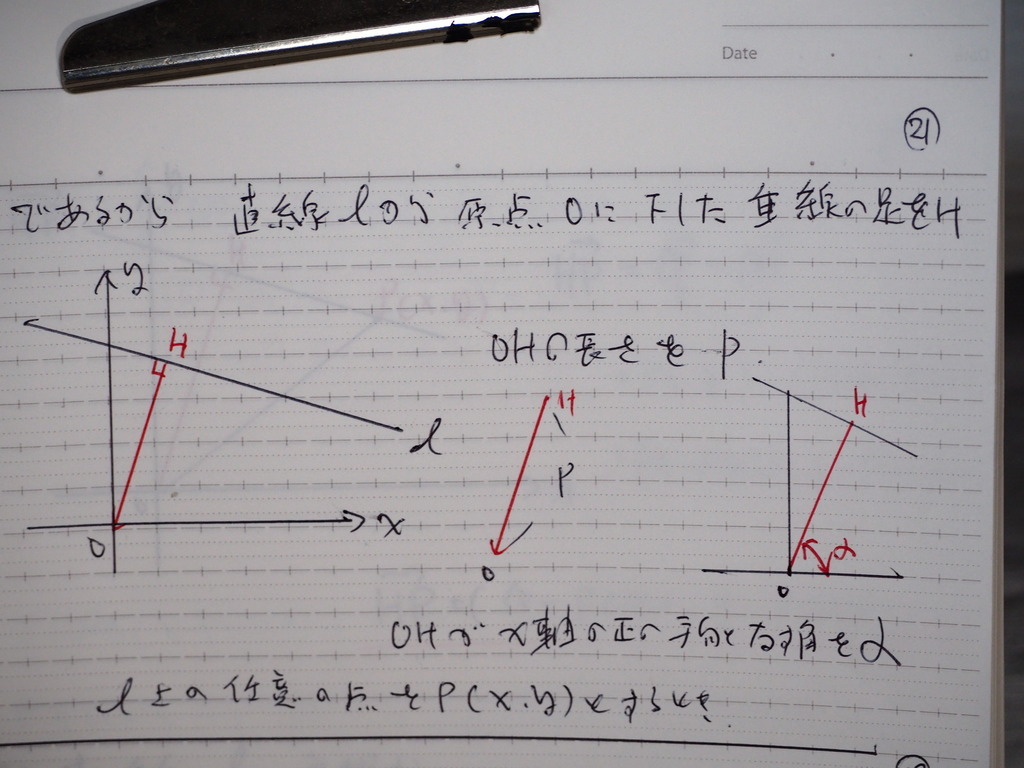 Date
21
であるから 直線lから 原点Oに下した垂線の足をH
y
H
OHの長さを p.
l
H
H
p
x
O
O
α
O
OHがx軸の正の方向となす角をα
l上の任意の点をP(x.y)とするとき.